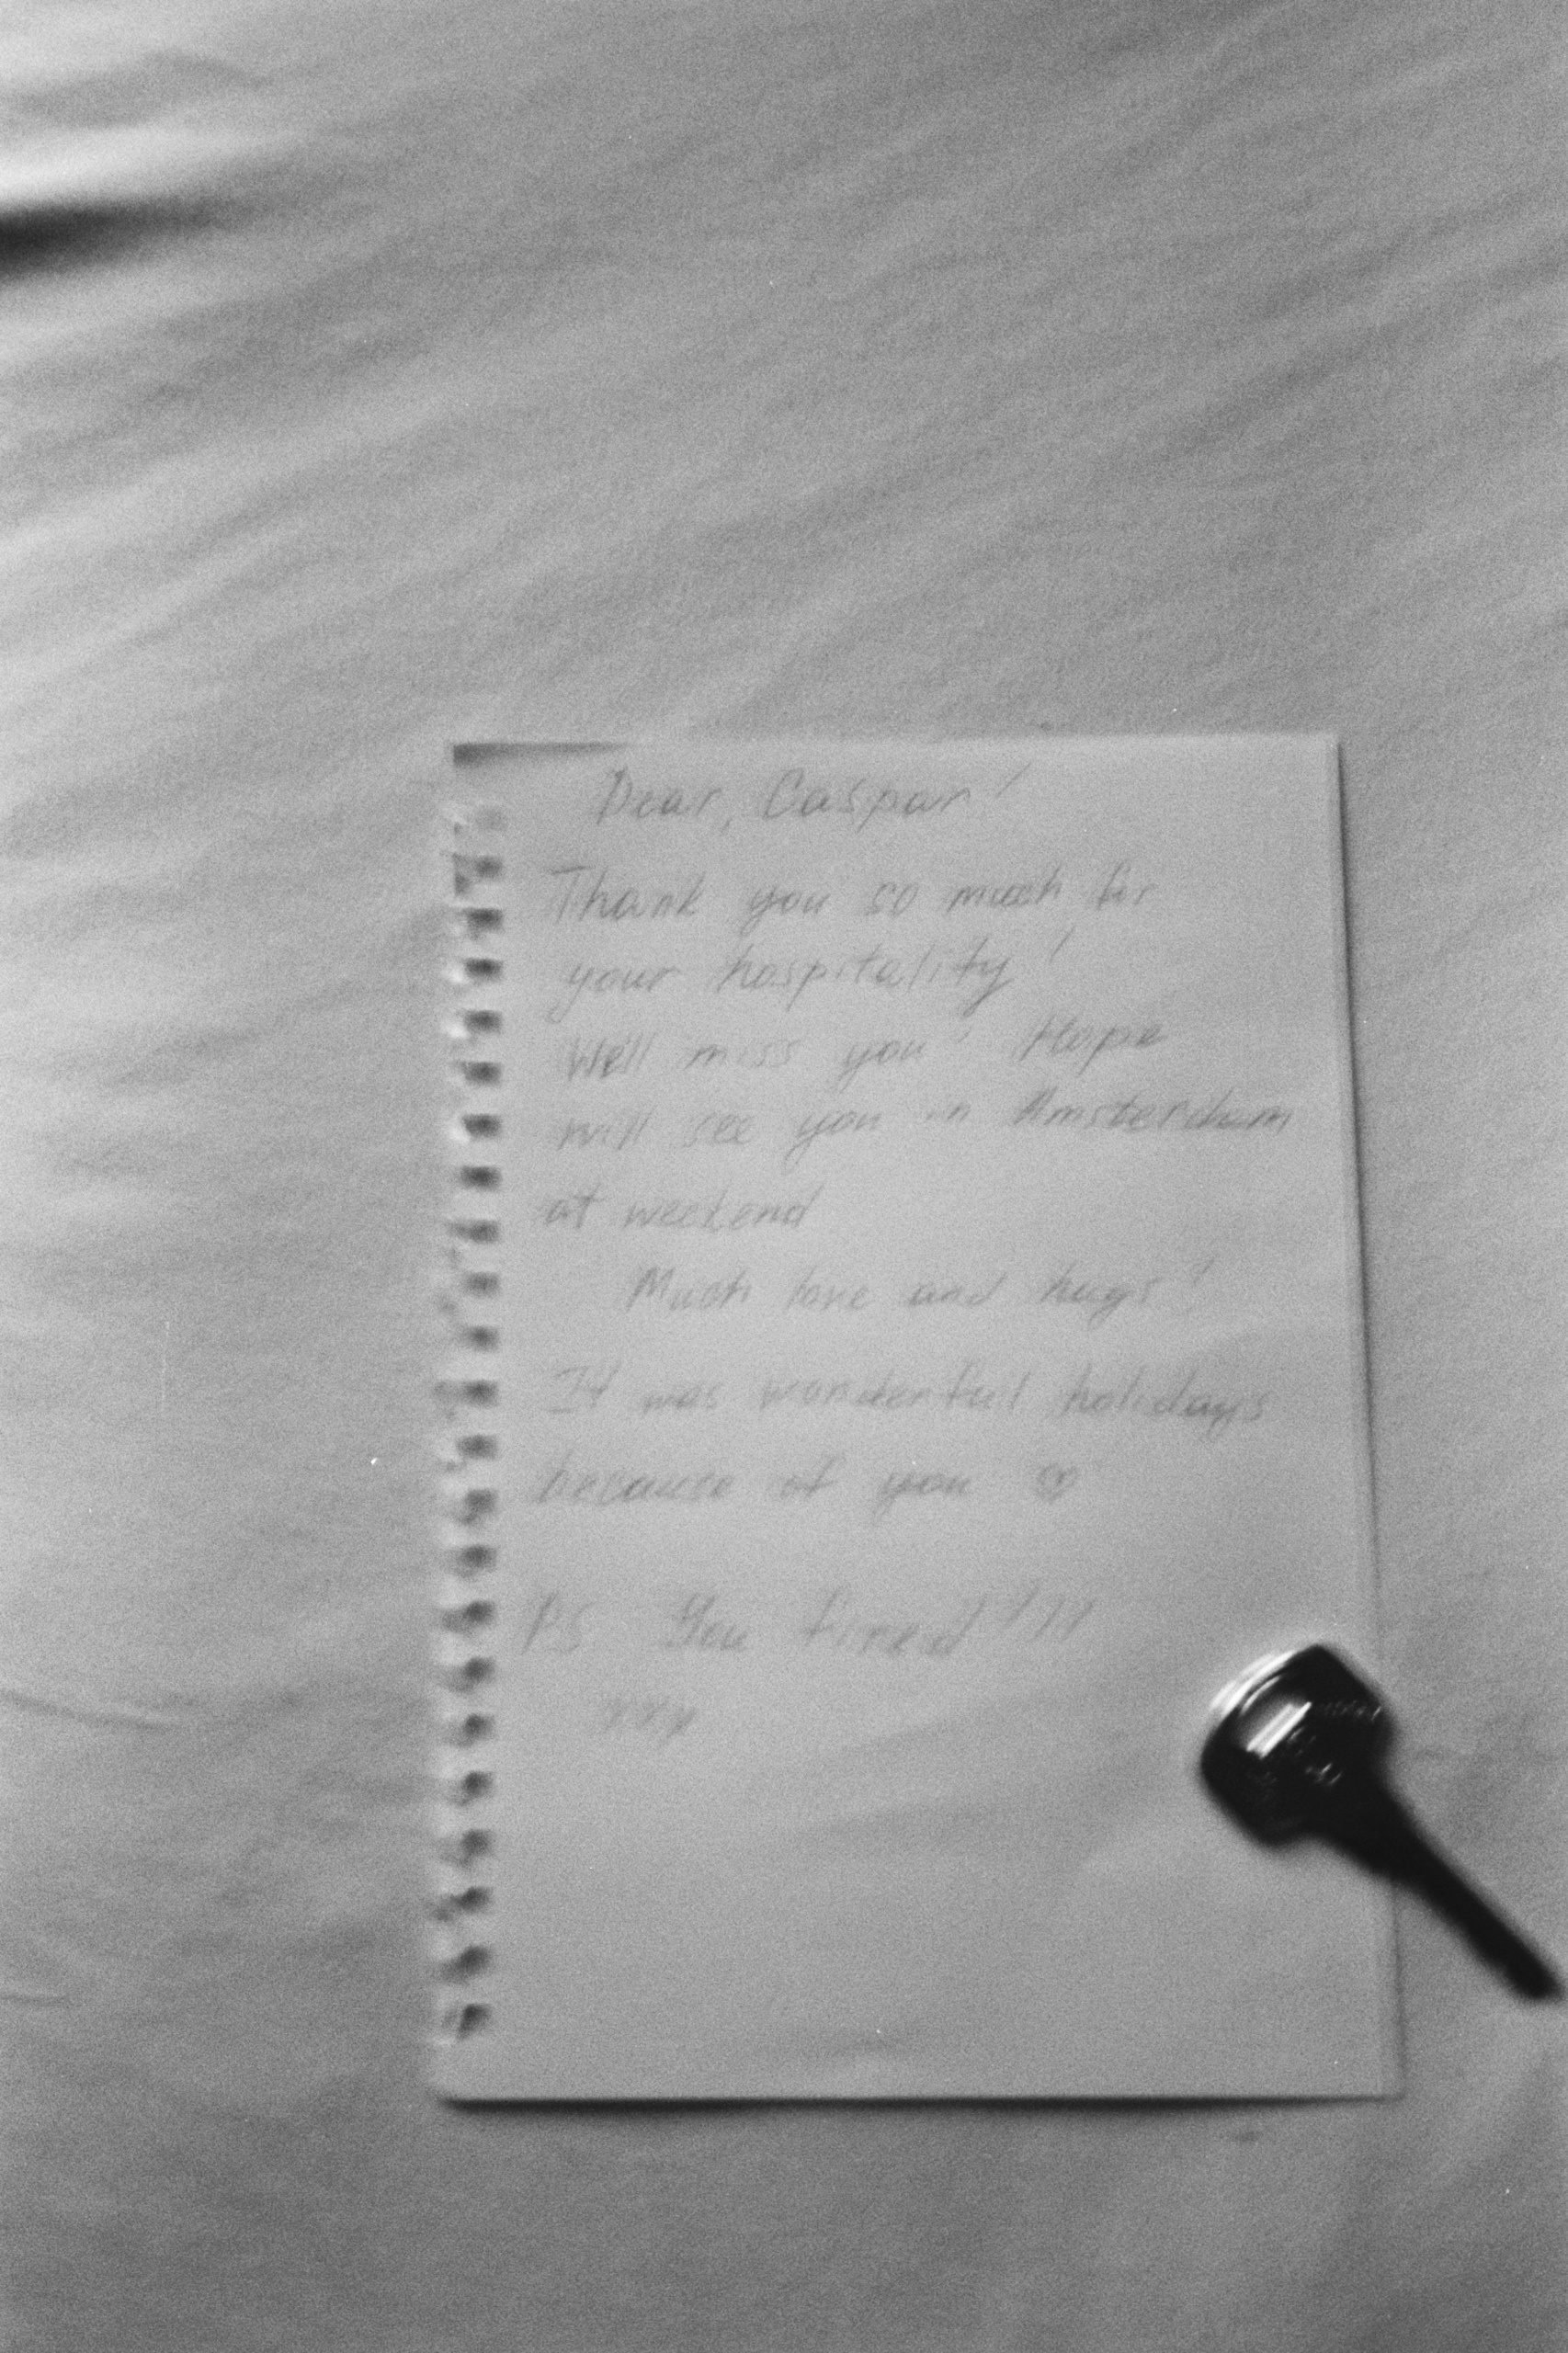 Dear, Caspar!
Thank you so much for
your hospitality!
We'll miss you! Hope
will see you in Amsterdam
at weekend
Much love and hugs!
It was wonderful holidays
because of you ♡
PS You fired!!!
xxx